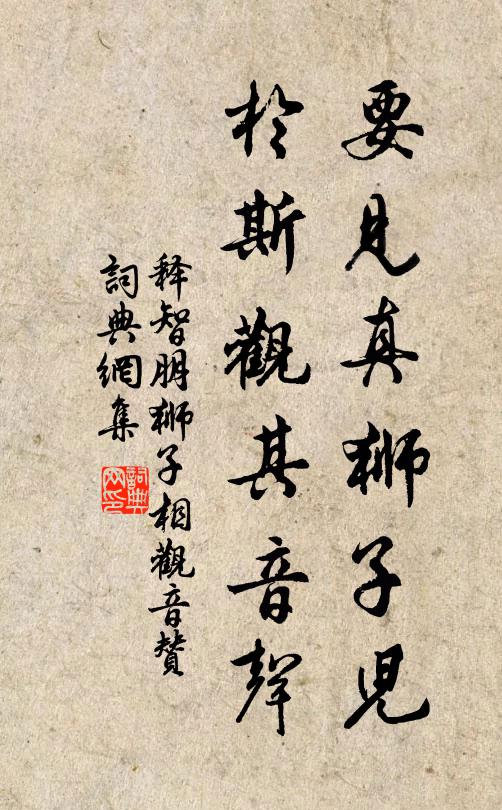 要見真獅子兒
於斯觀其音聲
释智明獅子相觀音贊
詞典網集
詞典网印